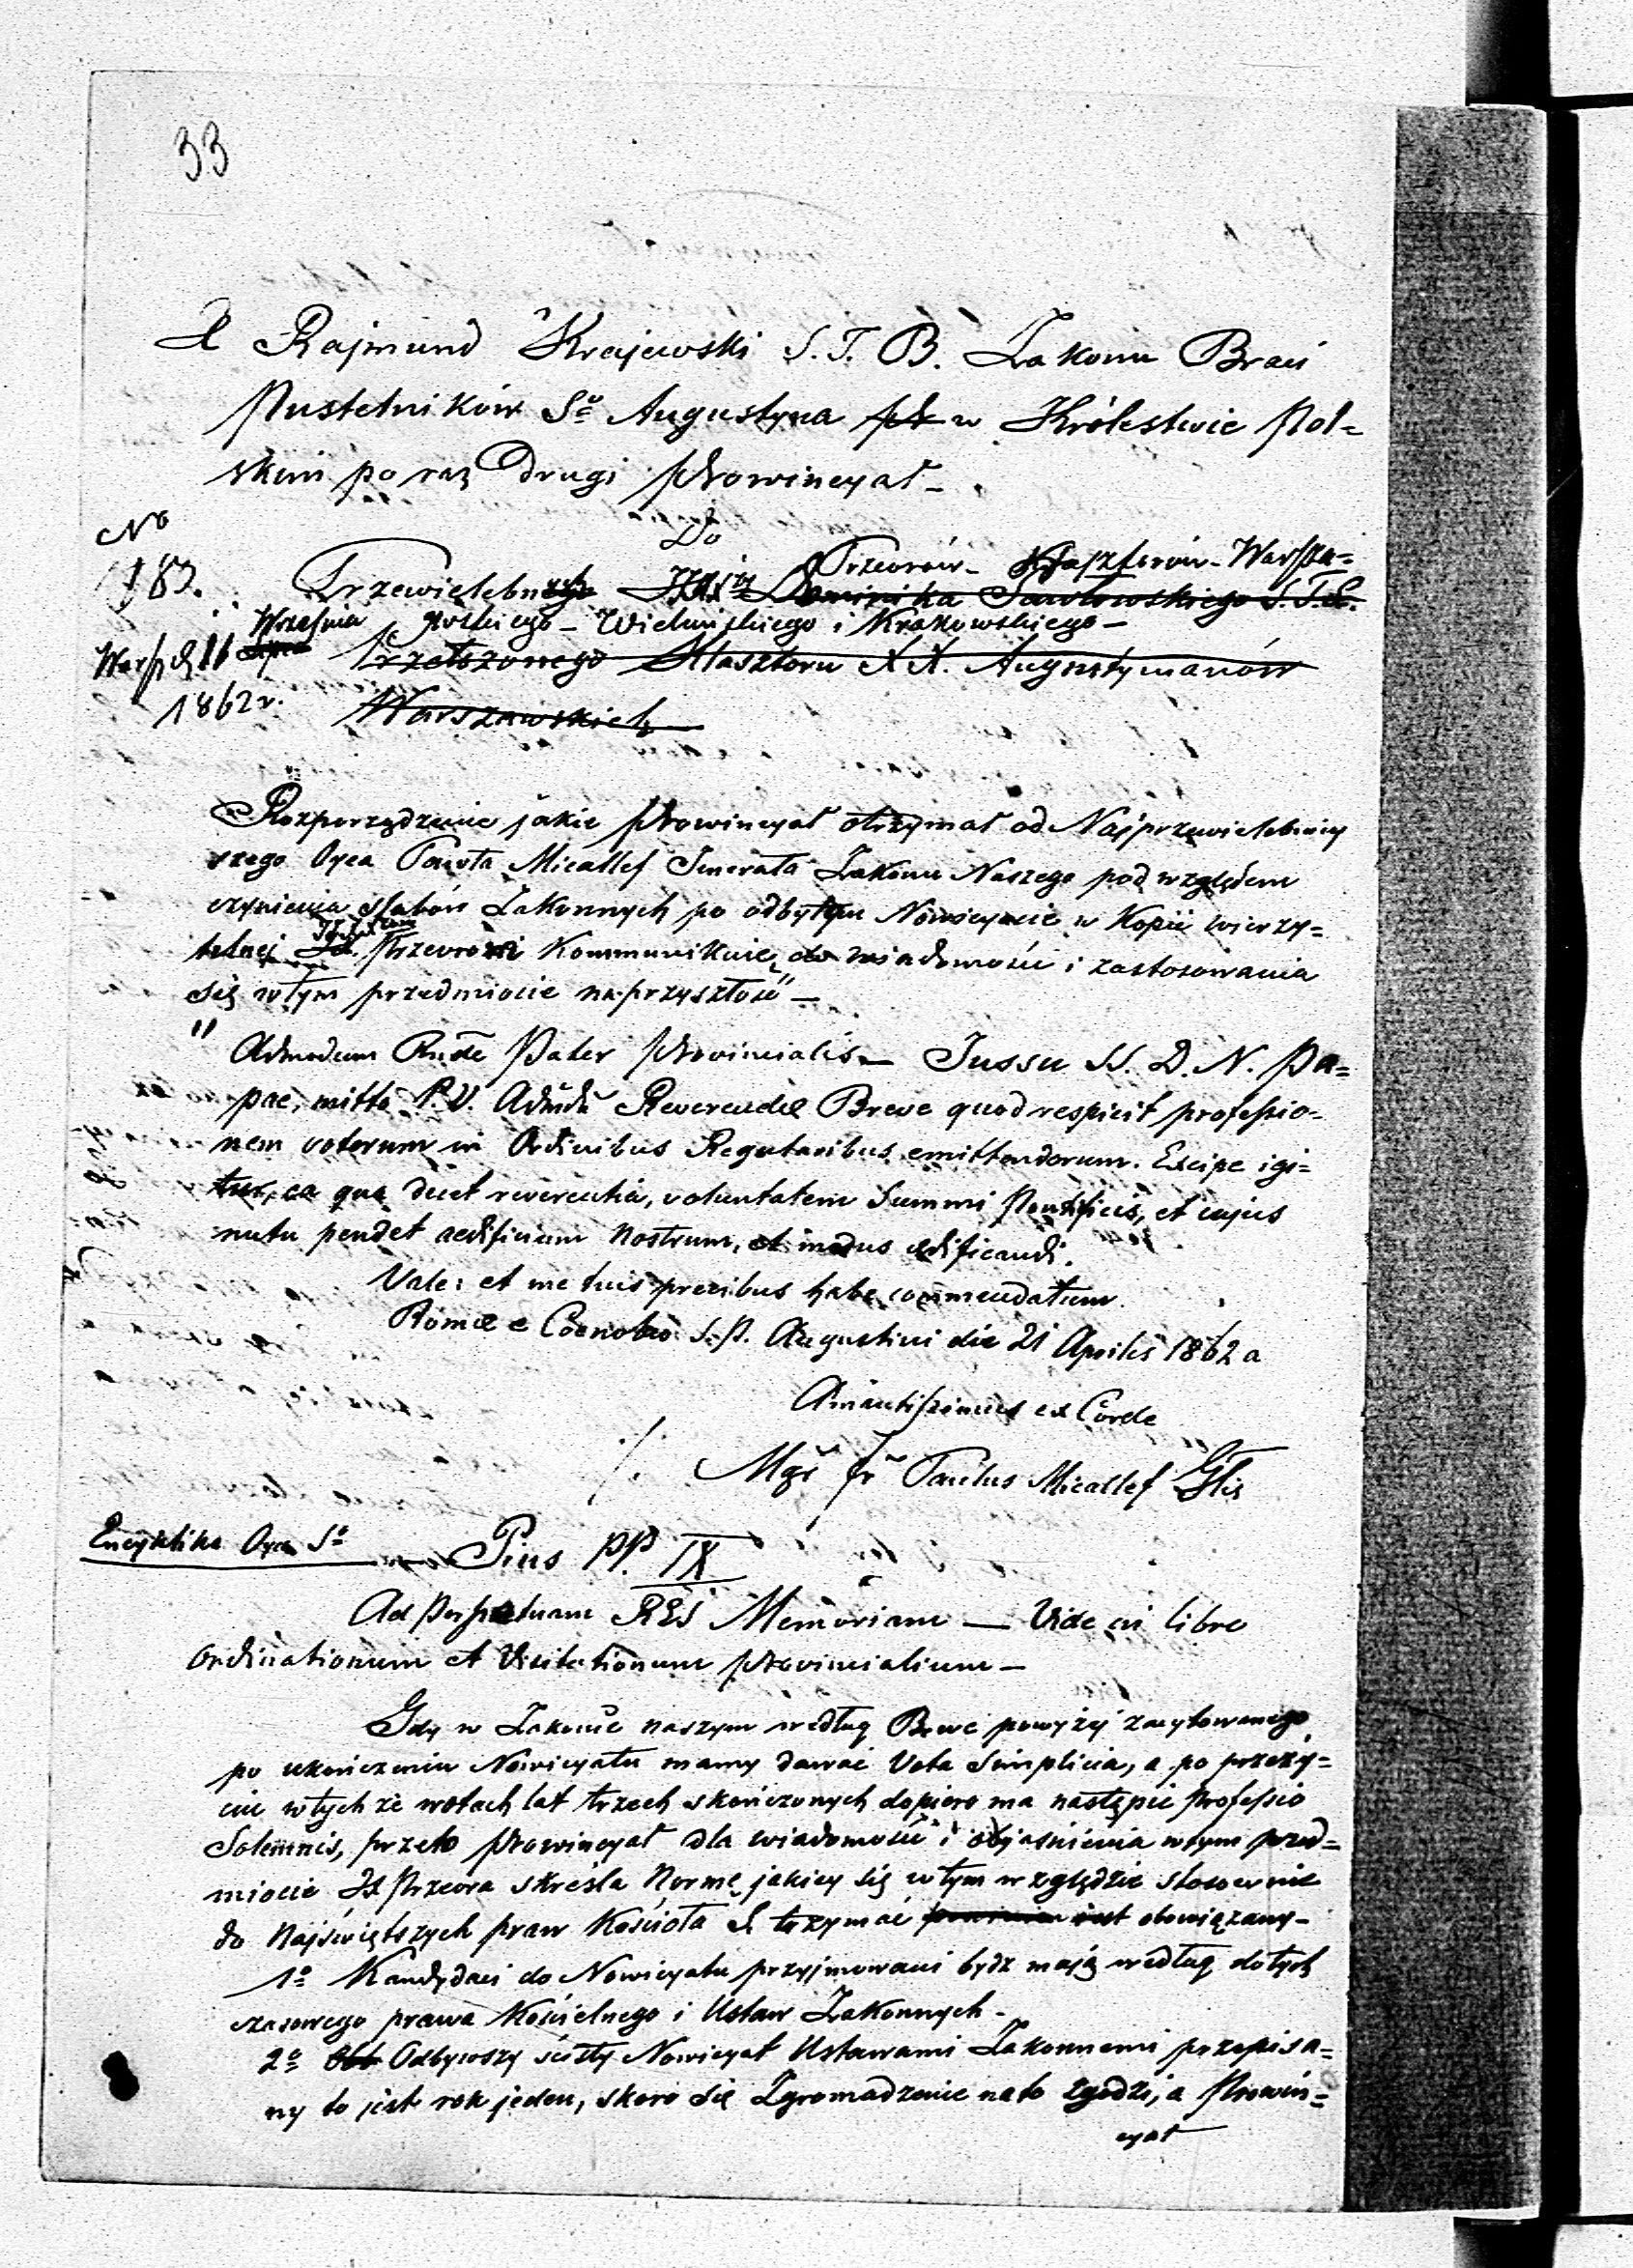 33
X Rajmund Krajewski S. T. B. Zakonu Braci
Pustelników Sº Augustyna w Królestwie Pol=
skim po raz Drugi Prowincyał _
No
183.
Do
Przeorów Klasztorów Warsza=
Przewielebnego Dominika Pawłowskiego S. T. L.
Września
wskiego _ Wieluńskiego i Krakowskiego _
Warsz d. 11 Lipca
Przełożonego Klasztoru XX. Augustyanów
1862 r.
Warszawskich
Rozporządzenie jakie Prowincyał otrzymał od Najprzewielebniey
szego Oyca Pawła Micallef Jenerała Zakonu Naszego pod względem
czynienia ślubów Zakonnych po odbytym Nowicyacie w Kopii wierzy=
telnej Przeorowi Kommunikuie do wiadomości i zastosowania
się w tym przedmiocie na przyszłość _
" Admodum Rnde Pater Provincialis _ Jussu SS. D. N. Pa=
pae, mitto P. V. Admdu Reverendæ Breve quod respicit professio=
nem votorum in Ordinibus Regularibus emittendorum. Excipe igi=
tur, ea qua decet reverentia, voluntatem Summi Pontificis, et cujus
nutu pendet aedificium Nostrum, et modus edificandi.
Vale: et me tuis precibus habe commendatum
Romæ e Coenobio S. P. Augustini die 21 Aprilis 1862 a
Amantissimus ex Corde
./. Mgr fr Paulus Micallef Glis
Encyklika Oyca Sº
Pius PP. IX
Ad Perpetuam REI Memoriam _ Vide in libro
Ordinationum et Visitationum Provincialium _
Gdy w Zakonie naszym według Breve powyżej zacytowanego
po ukończeniu Nowicyatu mamy dawać Vota Simplicia, a po przeży=
ciu w tych że wotach lat trzech skończonych dopiero ma nastąpić Professio
Solemnis, przeto Prowincyał dla wiadomości i objaśnienia w tym przed=
miocie JX Przeora skreśla Normę jakiey się w tym względzie stosownie
do Najświętszych praw Kościoła S. trzymać powinien jest obowiązany _
1º Kandydaci do Nowicyatu przyjmowani bydź mają według dotych
czasowego prawa Kościelnego i Ustaw Zakonnych _
2º Odbywszy ścisły Nowicyat Ustawami Zakonnemi przepisa=
ny to jest rok jeden, skoro się Zgromadzenie na to zgodzi, a Prowin=
cyał